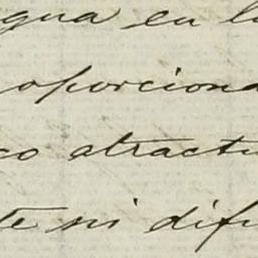 gua en l
oporciona
co atractu
te ni difu